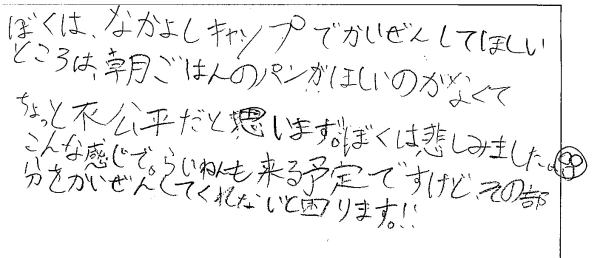 ぼくは、なかよしキャップでかいぜんしてほしい
ところは、朝ごはんのパンがほしいのがなくて
ちょっと不公平だと思います。ぼくは悲しみました。
こんな感じで。らいねんも来る予定ですけど、その部
分をかいぜんしてくれないと困ります。!!